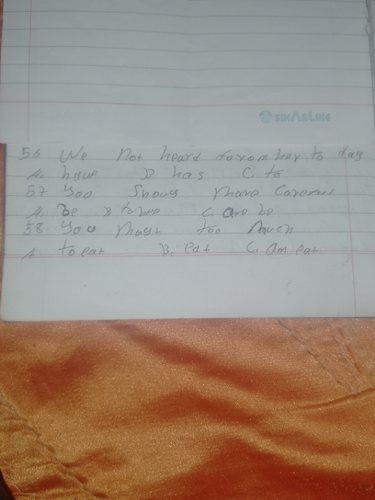 SINARLINE
56 We not heard from her to day
A. have B has C. to
57 You more careful
A. be B to be C. are be
58 You must too much
A to eat B. eat C. am eat